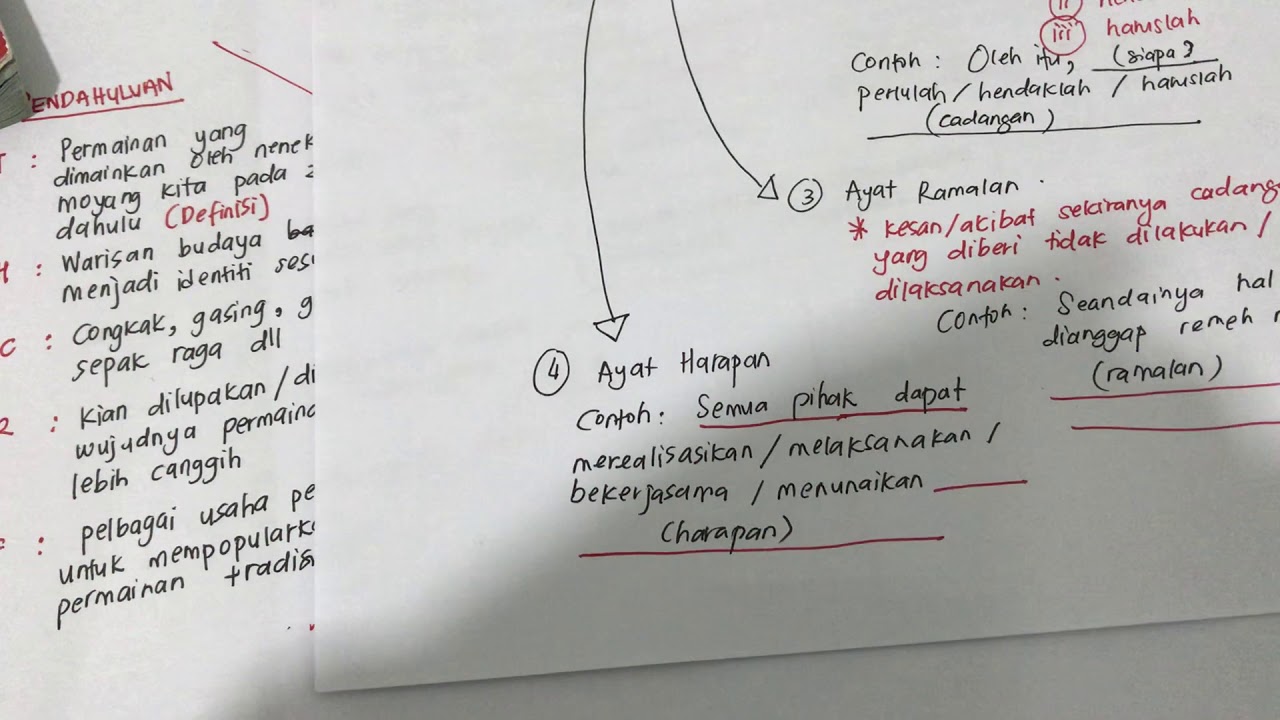 ENDAHULUAN
: Permainan yang
dimainkan oleh nenek
moyang kita pada
dahulu (Definisi)
: Warisan budaya
menjadi identiti
C : Congkak, gasing, g
sepak raga dll
: Kian dilupakan / di
wujudnya permaina
lebih canggih
: pelbagai usaha pe
untuk mempopularka
permainan tradisi
ii
iii haruslah
Contoh : Oleh itu, (siapa?)
perlulah / hendaklah / haruslah
(cadangan)
3 Ayat Ramalan .
* kesan/akibat sekiranya cadang
yang diberi tidak dilakukan /
dilaksanakan .
Contoh : Seandainya hal
dianggap remeh
(ramalan)
4 Ayat Harapan
Contoh : Semua pihak dapat
merealisasikan / melaksanakan /
bekerjasama / menunaikan
(harapan)